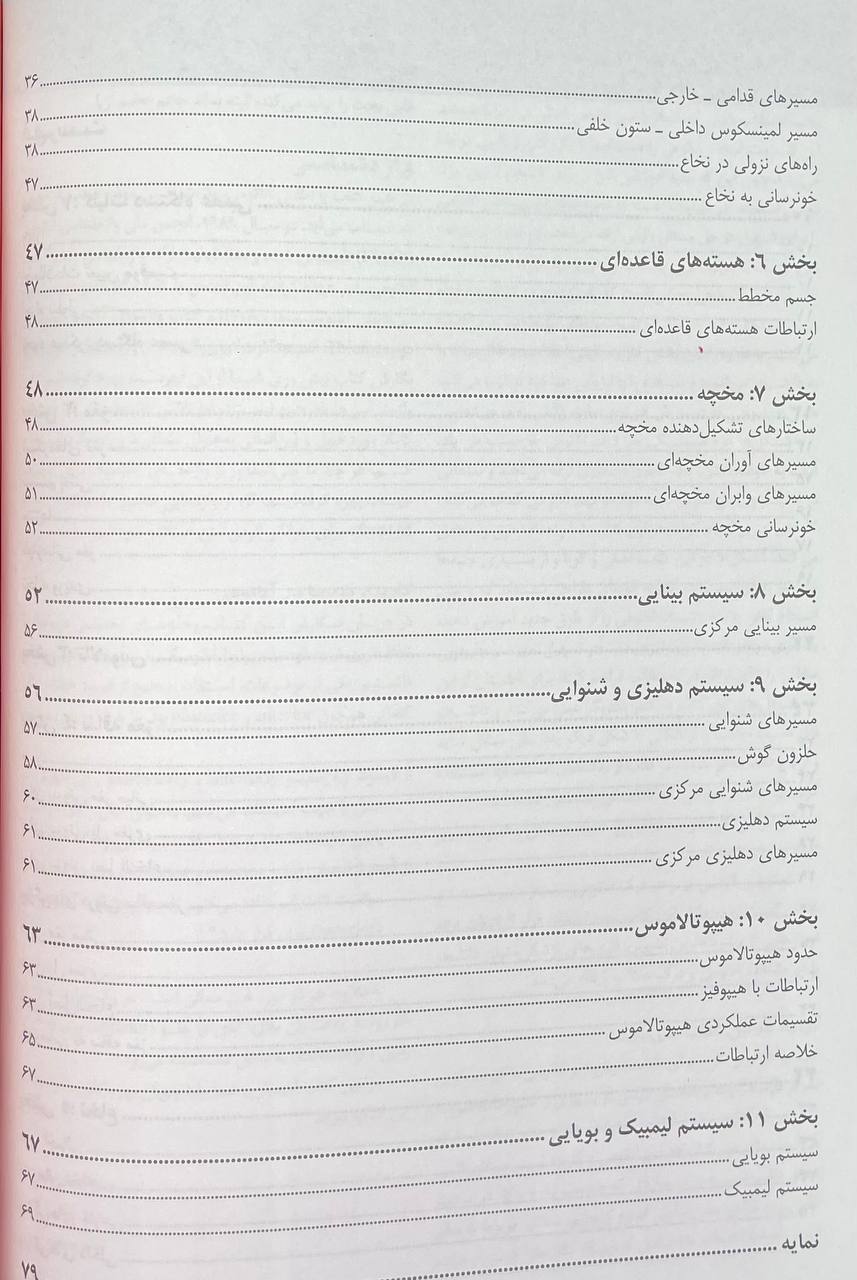 مسیرهای قدامی ـ خارجی ۳۶
مسیر لمینسکوس داخلی ـ ستون خلفی ۳۸
راه‌های نزولی در نخاع ۳۸
خونرسانی به نخاع ۴۷
بخش ۶: هسته‌های قاعده‌ای ۴۷
جسم مخطط ۴۷
ارتباطات هسته‌های قاعده‌ای ۴۸
بخش ۷: مخچه ۴۸
ساختارهای تشکیل‌دهنده مخچه ۴۸
مسیرهای آوران مخچه‌ای ۵۰
مسیرهای وابران مخچه‌ای ۵۱
خونرسانی مخچه ۵۲
بخش ۸: سیستم بینایی ۵۲
مسیر بینایی مرکزی ۵۶
بخش ۹: سیستم دهلیزی و شنوایی ۵۶
مسیرهای شنوایی ۵۷
حلزون گوش ۵۸
مسیرهای شنوایی مرکزی ۶۰
سیستم دهلیزی ۶۱
مسیرهای دهلیزی مرکزی ۶۱
بخش ۱۰: هیپوتالاموس ۶۳
حدود هیپوتالاموس ۶۳
ارتباطات با هیپوفیز ۶۳
تقسیمات عملکردی هیپوتالاموس ۶۵
خلاصه ارتباطات ۶۷
بخش ۱۱: سیستم لیمبیک و بویایی ۶۷
سیستم بویایی ۶۷
سیستم لیمبیک ۶۹
نمایه ۷۹